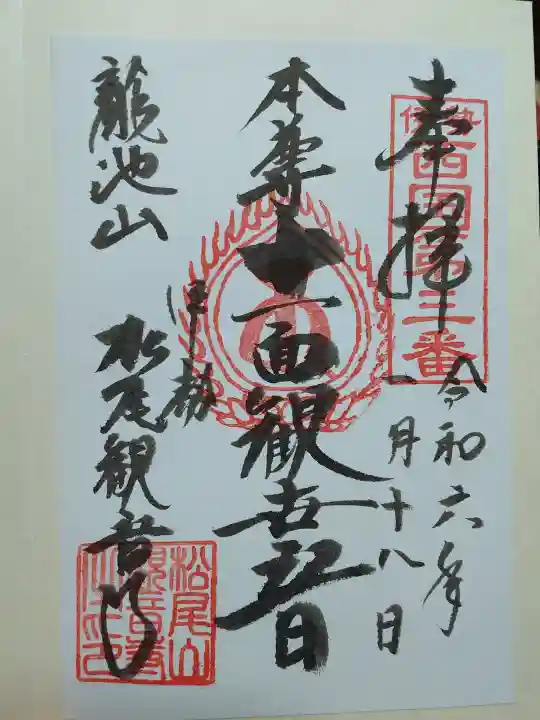 奉拝
令和六年
一月十八日
本尊十一面観世音
伊勢
龍池山
松尾観音寺
伊勢西国第三番
松尾山